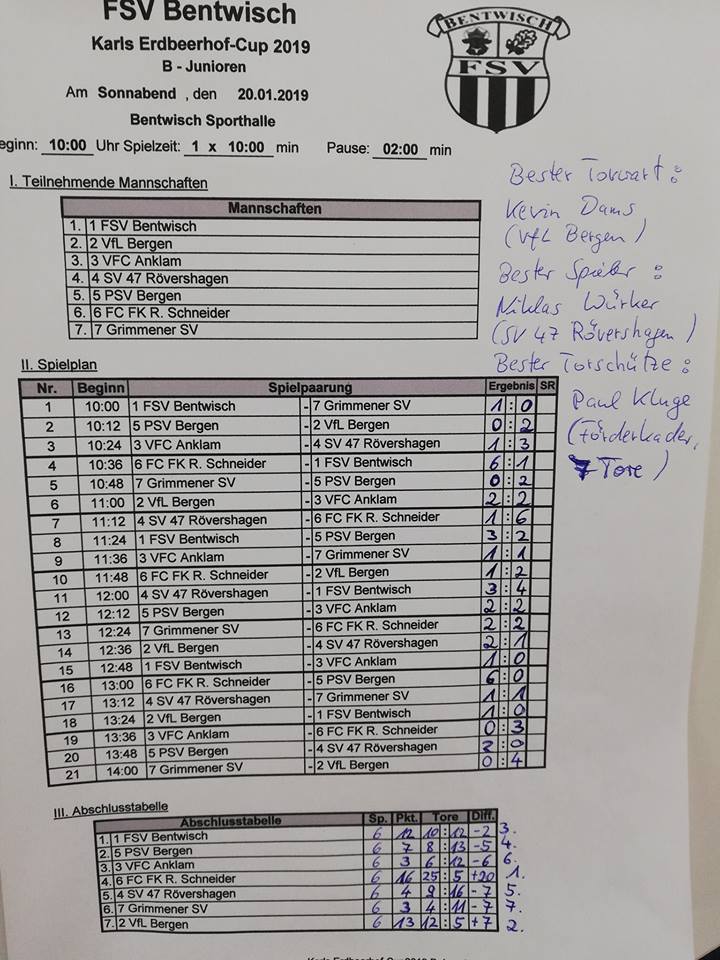 FSV Bentwisch
Karls Erdbeerhof-Cup 2019
B - Junioren
Am Sonnabend , den 20.01.2019
Bentwisch Sporthalle
BENTWISCH
FSV
eginn: 10:00 Uhr Spielzeit: 1 x 10:00 min Pause: 02:00 min
I. Teilnehmende Mannschaften
Mannschaften
1. 1 FSV Bentwisch
2. 2 VfL Bergen
3. 3 VFC Anklam
4. 4 SV 47 Rövershagen
5. 5 PSV Bergen
6. 6 FC FK R. Schneider
7. 7 Grimmener SV
Bester Torwart :
Kevin Dams
(VfL Bergen)
Bester Spieler :
Niklas Würker
(SV 47 Rövershagen)
Bester Torschütze :
Paul Kluge
(Förderkader,
7 Tore)
II. Spielplan
Nr. Beginn Spielpaarung Ergebnis SR
1 10:00 1 FSV Bentwisch - 7 Grimmener SV 1 : 0
2 10:12 5 PSV Bergen - 2 VfL Bergen 0 : 2
3 10:24 3 VFC Anklam - 4 SV 47 Rövershagen 1 : 3
4 10:36 6 FC FK R. Schneider - 1 FSV Bentwisch 6 : 1
5 10:48 7 Grimmener SV - 5 PSV Bergen 0 : 2
6 11:00 2 VfL Bergen - 3 VFC Anklam 2 : 2
7 11:12 4 SV 47 Rövershagen - 6 FC FK R. Schneider 1 : 6
8 11:24 1 FSV Bentwisch - 5 PSV Bergen 3 : 2
9 11:36 3 VFC Anklam - 7 Grimmener SV 1 : 1
10 11:48 6 FC FK R. Schneider - 2 VfL Bergen 1 : 2
11 12:00 4 SV 47 Rövershagen - 1 FSV Bentwisch 3 : 4
12 12:12 5 PSV Bergen - 3 VFC Anklam 2 : 2
13 12:24 7 Grimmener SV - 6 FC FK R. Schneider 2 : 2
14 12:36 2 VfL Bergen - 4 SV 47 Rövershagen 2 : 1
15 12:48 1 FSV Bentwisch - 3 VFC Anklam 1 : 0
16 13:00 6 FC FK R. Schneider - 5 PSV Bergen 6 : 0
17 13:12 4 SV 47 Rövershagen - 7 Grimmener SV 1 : 1
18 13:24 2 VfL Bergen - 1 FSV Bentwisch 1 : 0
19 13:36 3 VFC Anklam - 6 FC FK R. Schneider 0 : 3
20 13:48 5 PSV Bergen - 4 SV 47 Rövershagen 2 : 0
21 14:00 7 Grimmener SV - 2 VfL Bergen 0 : 4
III. Abschlusstabelle
Abschlusstabelle Sp. Pkt. Tore Diff.
1. 1 FSV Bentwisch 6 12 10 : 12 -2 3.
2. 5 PSV Bergen 6 7 8 : 13 -5 4.
3. 3 VFC Anklam 6 3 6 : 12 -6 6.
4. 6 FC FK R. Schneider 6 16 25 : 5 +20 1.
5. 4 SV 47 Rövershagen 6 4 9 : 16 -7 5.
6. 7 Grimmener SV 6 3 4 : 11 -7 7.
7. 2 VfL Bergen 6 13 12 : 5 +7 2.